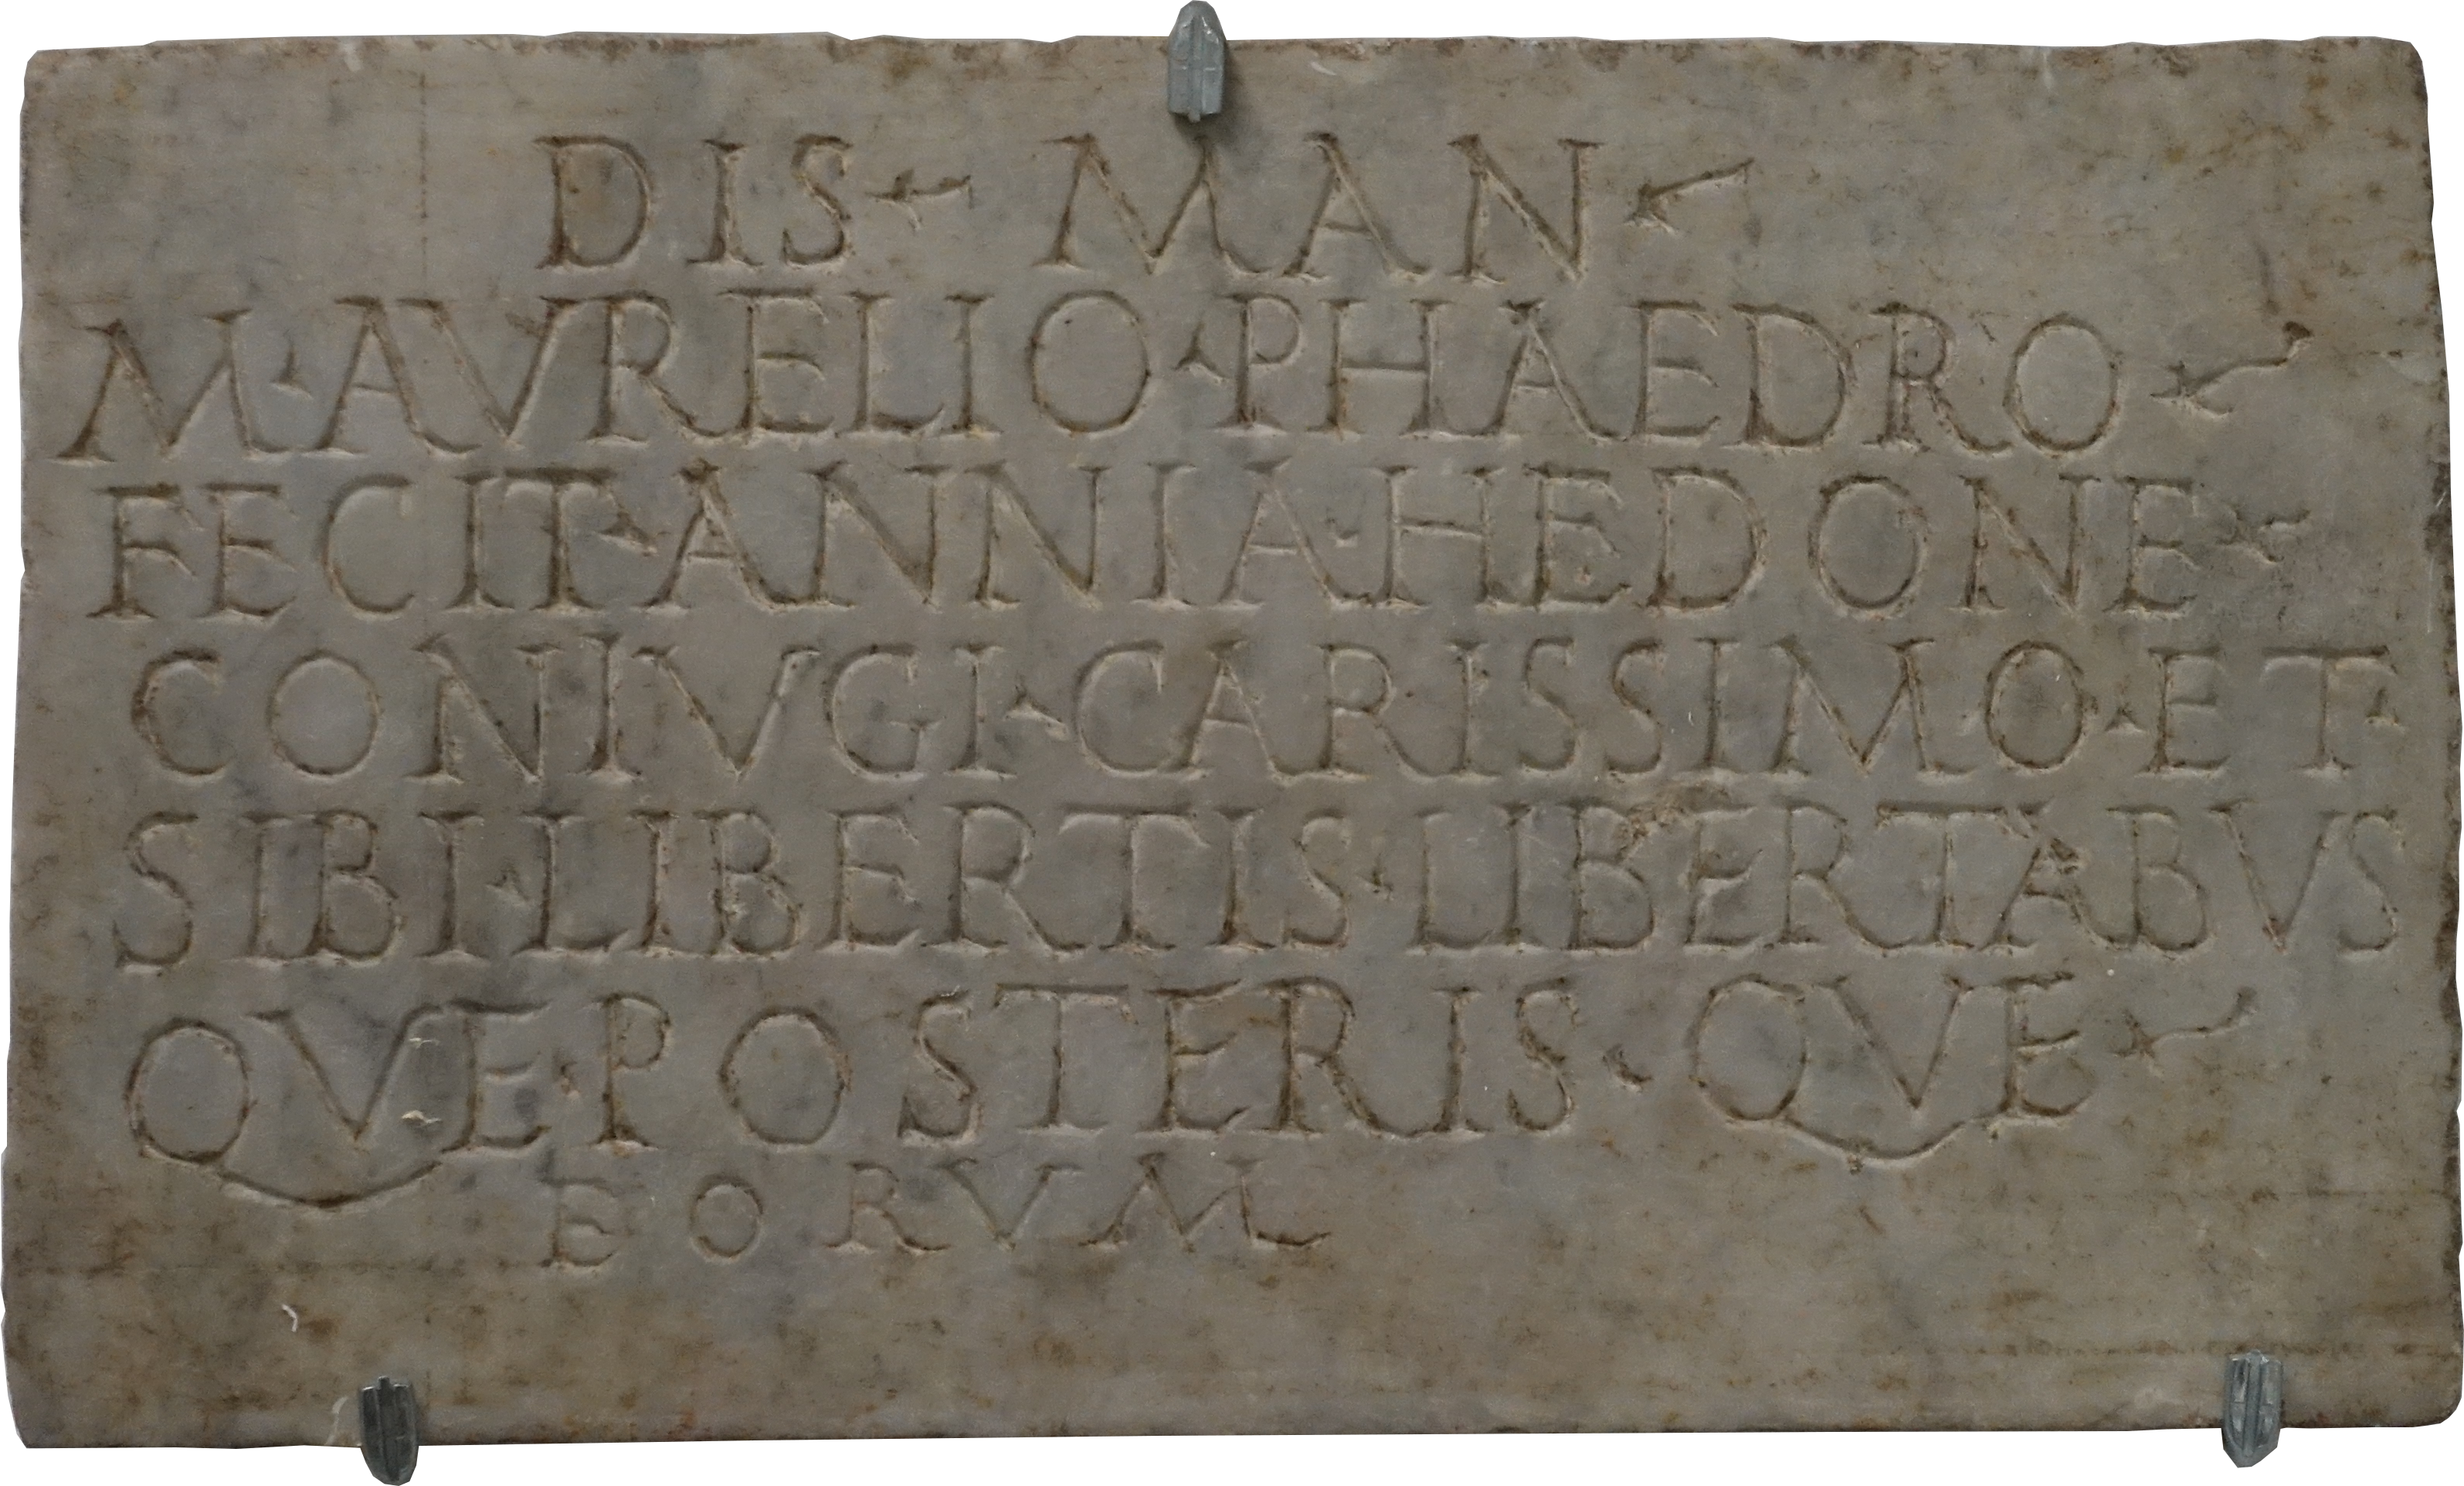 DIS MAN
M·AVRELIO·PHAEDRO
FECIT·ANNIA·HEDONE
CONIVGI·CARISSIMO·ET·
SIBI·LIBERTIS·LIBERTABVS
QVE·POSTERIS·QVE
EORVM